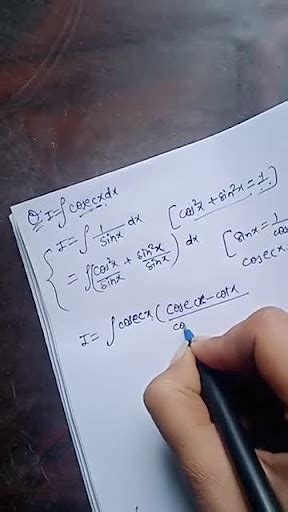 Q: I = ∫ cosecx dx
I = ∫ 1/sinx dx [cos²x + sin²x = 1]
= ∫ (cos²x/sinx + sin²x/sinx) dx [sinx = 1/cos
cosecx
I = ∫ cosecx (cosecx - cotx/co